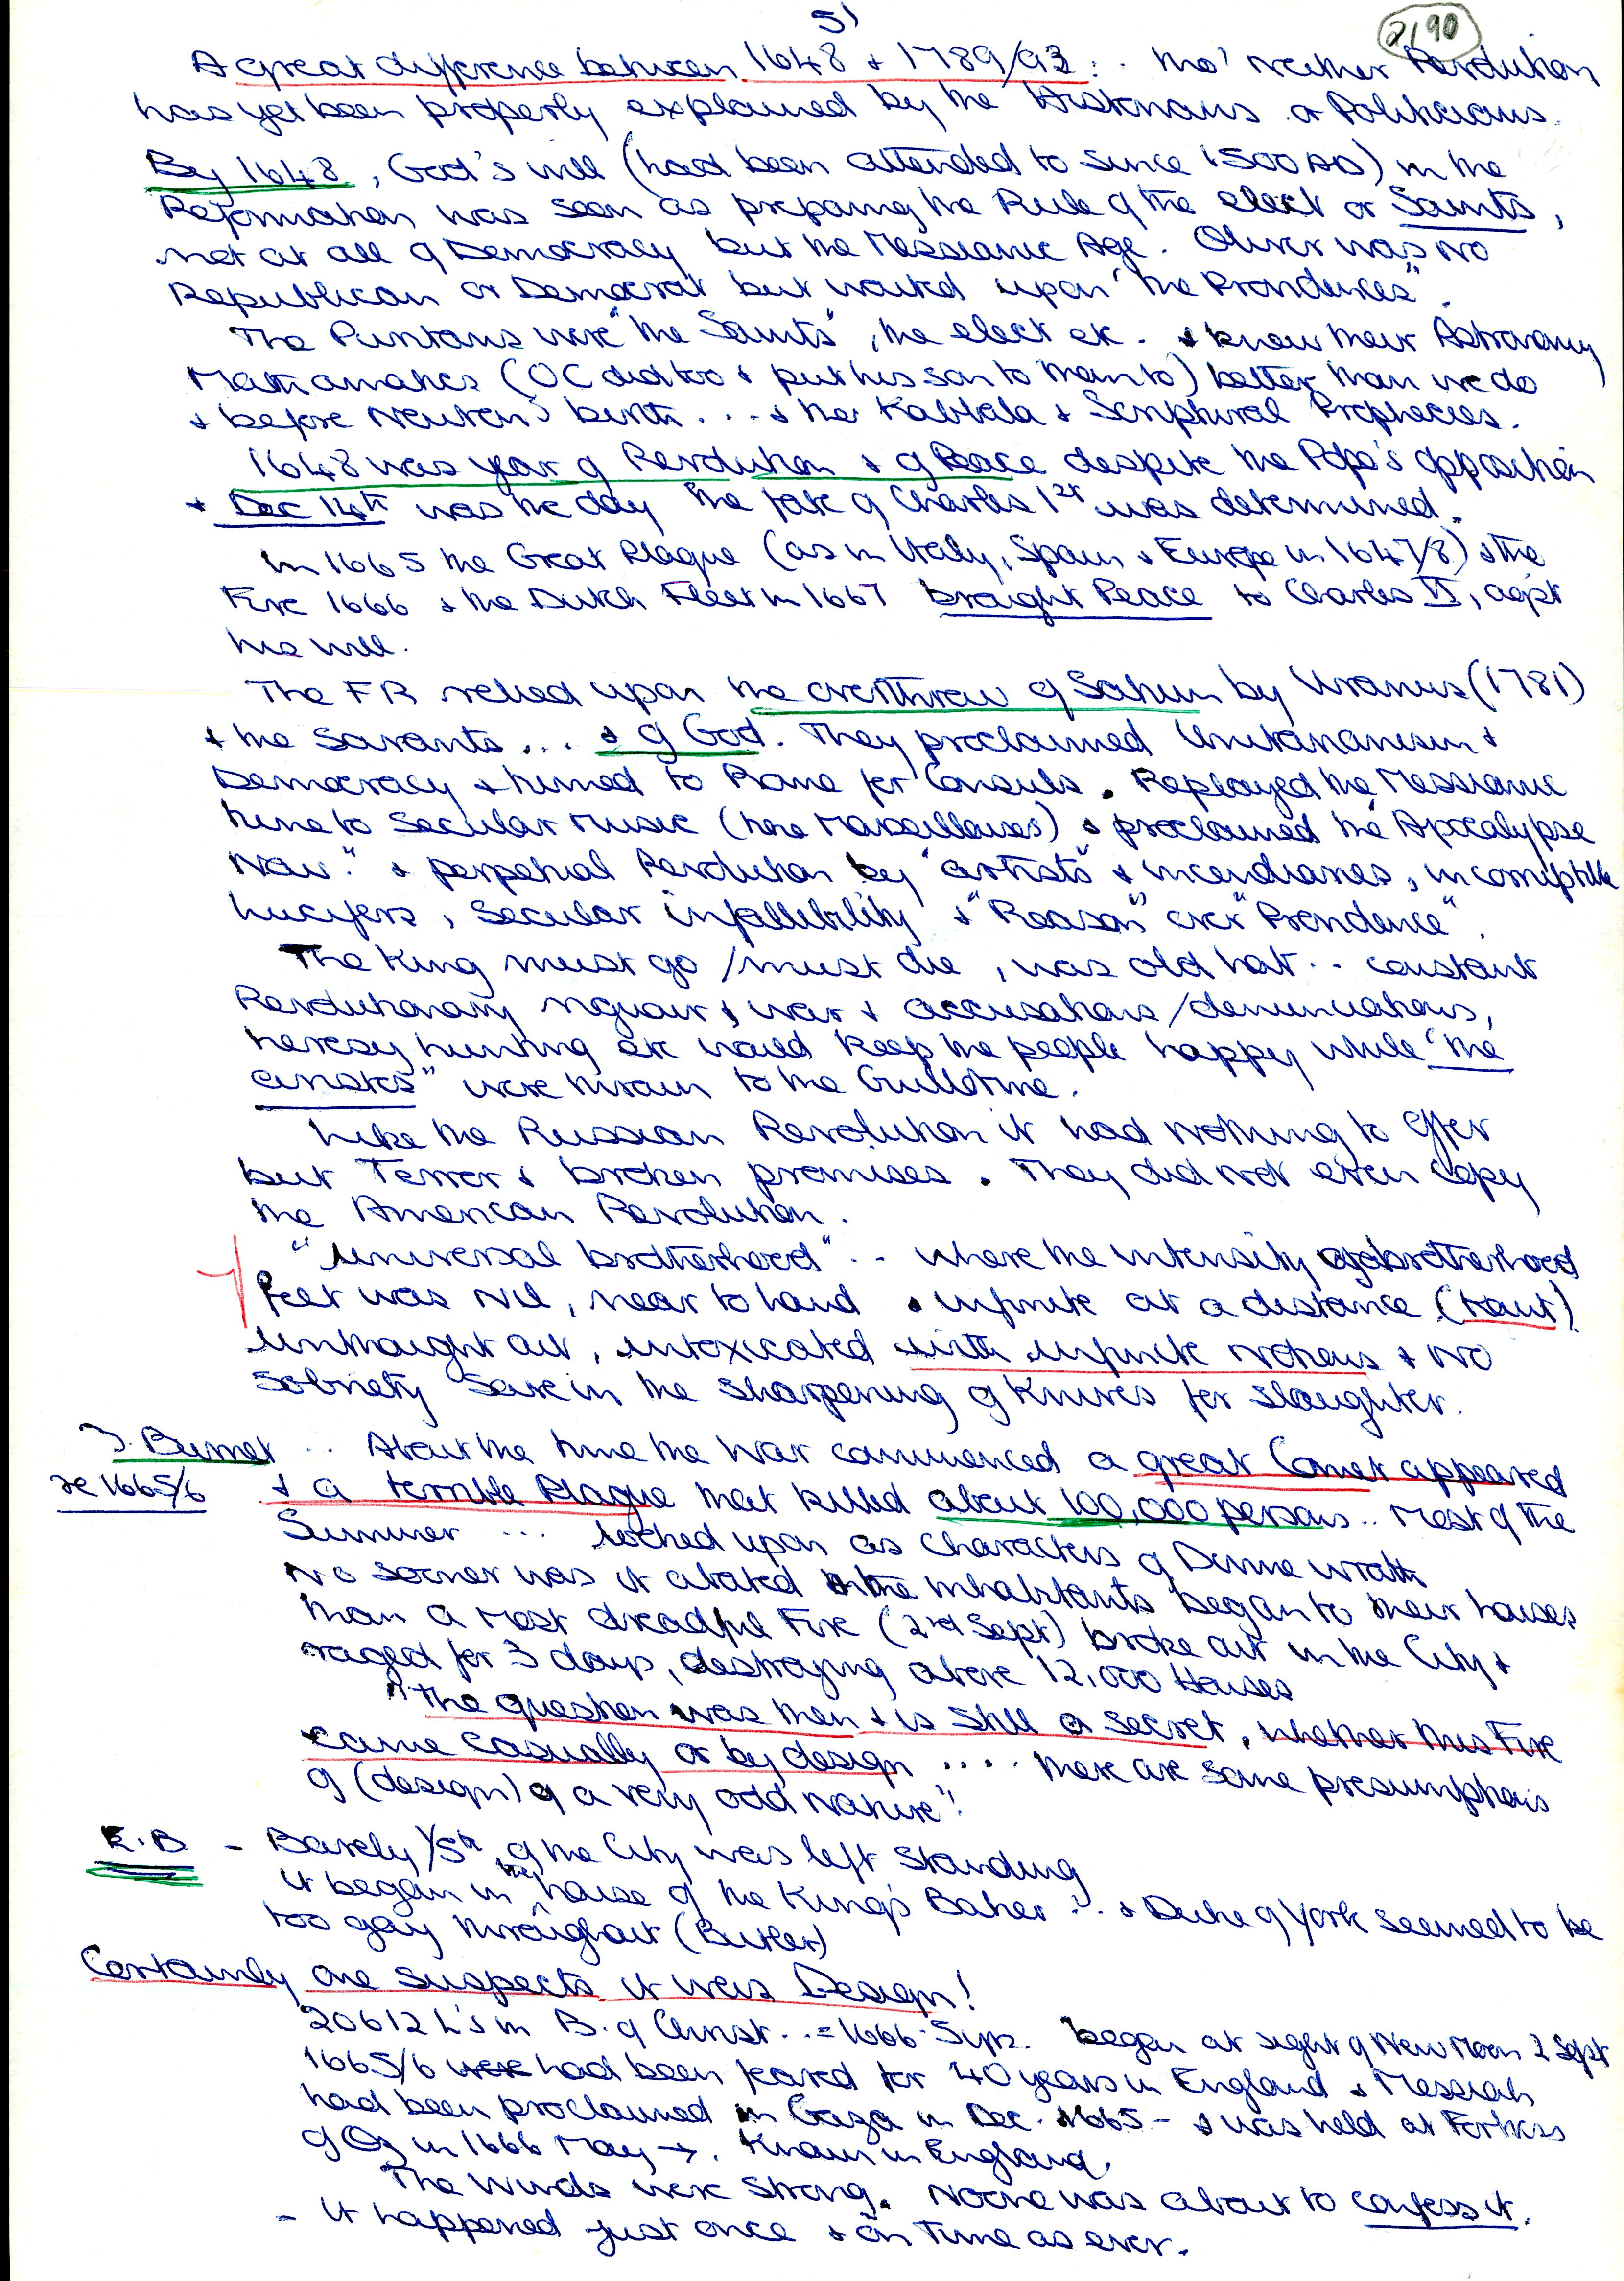 5)
2/90
A great difference between 1648 & 1789/93: .. tho' neither Revolution
has yet been properly explained by the Historians or Politicians.
By 1648, God's will (had been attended to since 1500 AD) in the
Reformation was seen as preparing the Rule of the elect or Saints,
not at all of Democracy but the Messianic Age. Oliver was no
Republican or Democrat but waited upon "the Providences".
The Puritans were "the Saints", the elect etc. & knew their Astronomy
Mathematics (OC did too & put his son to them to) better than we do
& before Newton's birth ... & the Kabbala & Scriptural Prophecies.
1648 was year of Revolution & of Peace despite the Pope's opposition
& Dec 14th was the day the fate of Charles 1st was determined.
In 1665 the Great Plague (as in Italy, Spain & Europe in 1647/8) & the
Fire 1666 & the Dutch Fleet in 1667 brought Peace to Charles II, agst
his will.
The FR relied upon the overthrow of Saturn by Uranus (1781)
& the Savants ... & of God. They proclaimed Unitarianism &
Democracy & turned to Rome for Consuls. Replayed the Messianic
tune to Secular Music (here Marseillaises) & proclaimed the "Apocalypse
Now." & perpetual Revolution by "artists" & incendiaries, incorruptible
Lucifers, Secular infallibility & "Reason" over "Providence".
The King must go / must die, was old hat .. constant
Revolutionary rigour & war & accusations/denunciations,
heresy hunting etc would keep the people happy while "the
cynics" were thrown to the Guillotine.
Like the Russian Revolution it had nothing to offer
but Terror & broken promises. They did not even copy
the American Revolution.
"Universal brotherhood" .. where the intensity of brotherhood
felt was nil, near to hand & infinite at a distance (Kant)
Unthought out, intoxicated with infinite notions & no
Sobriety save in the sharpening of Knives for slaughter.
J. Burnet .. About the time the War commenced a great Comet appeared
re 1665/6 & a terrible Plague that killed about 100,000 persons .. Most of the
Summer ... looked upon as Characters of Divine wrath
No sooner was it abated & the inhabitants began to their houses
than a most dreadful Fire (2nd Sept) broke out in the City &
raged for 3 days, destroying above 12,000 Houses
"The question was then & is still a secret, whether this Fire
came casually or by design .... there are some presumptions
of (design) of a very odd nature"!
E.B - Barely 1/5th of the City was left standing
it began in the house of the King's Baker .. & Duke of York seemed to be
too gay throughout (Butler)
Certainly one suspects it was Design!
20612 L's in B. of Christ .. = 1666.5yrs. began at sight of New Moon 2 Sept
1665/6 were had been feared for 40 years in England & Messiah
had been proclaimed in Gaza in Dec. 1665 - & was held at Fortress
of Oz in 1666 May →. Known in England.
The Winds were Strong. Noone was about to confess it.
- it happened just once & on Time as ever.